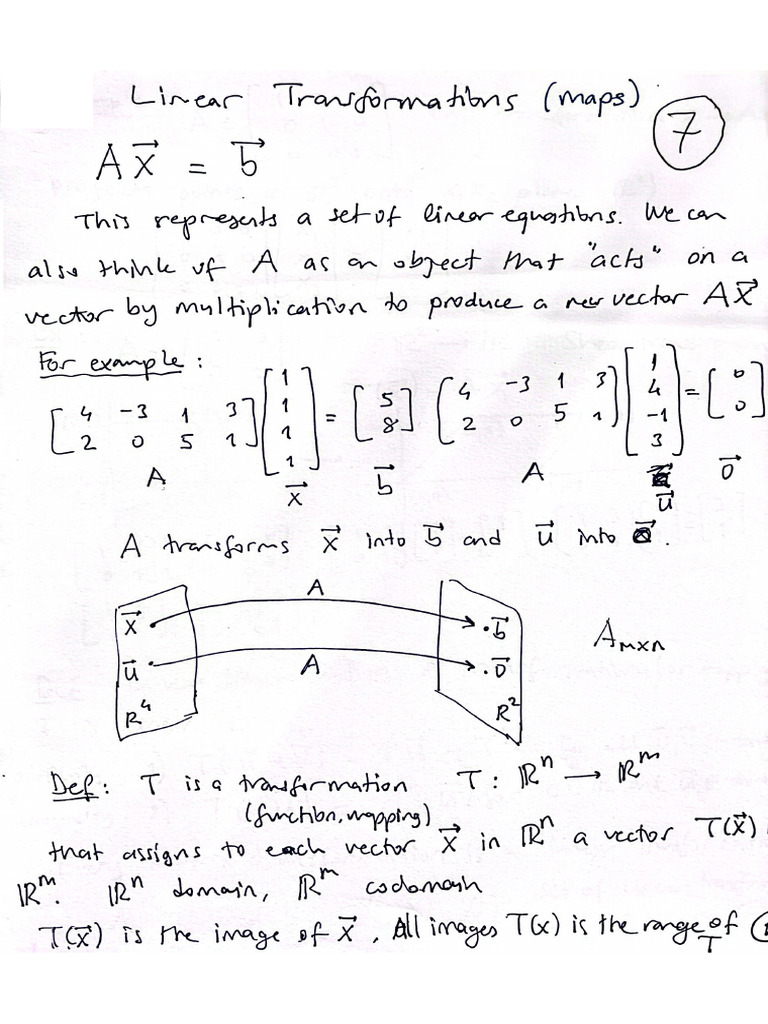 Linear Transformations (maps)
7
A x⃗ = b⃗
This represents a set of linear equations. We can
also think of A as an object that "acts" on a
vector by multiplication to produce a new vector A x⃗
For example:
[4 -3 1 3; 2 0 5 1] [1; 1; 1; 1] = [5; 8] [4 -3 1 3; 2 0 5 1] [1; 4; -1; 3] = [0; 0]
A x⃗ b⃗ A u⃗ 0⃗
A transforms x⃗ into b⃗ and u⃗ into 0⃗.
A
x⃗ . b⃗ A m×n
u⃗ A . 0⃗
R⁴ R²
Def: T is a transformation T: ℝⁿ → ℝᵐ
(function, mapping)
that assigns to each vector x⃗ in ℝⁿ a vector T(x⃗)
ℝᵐ. ℝⁿ domain, ℝᵐ codomain
T(x⃗) is the image of x⃗. All images T(x) is the range of
T